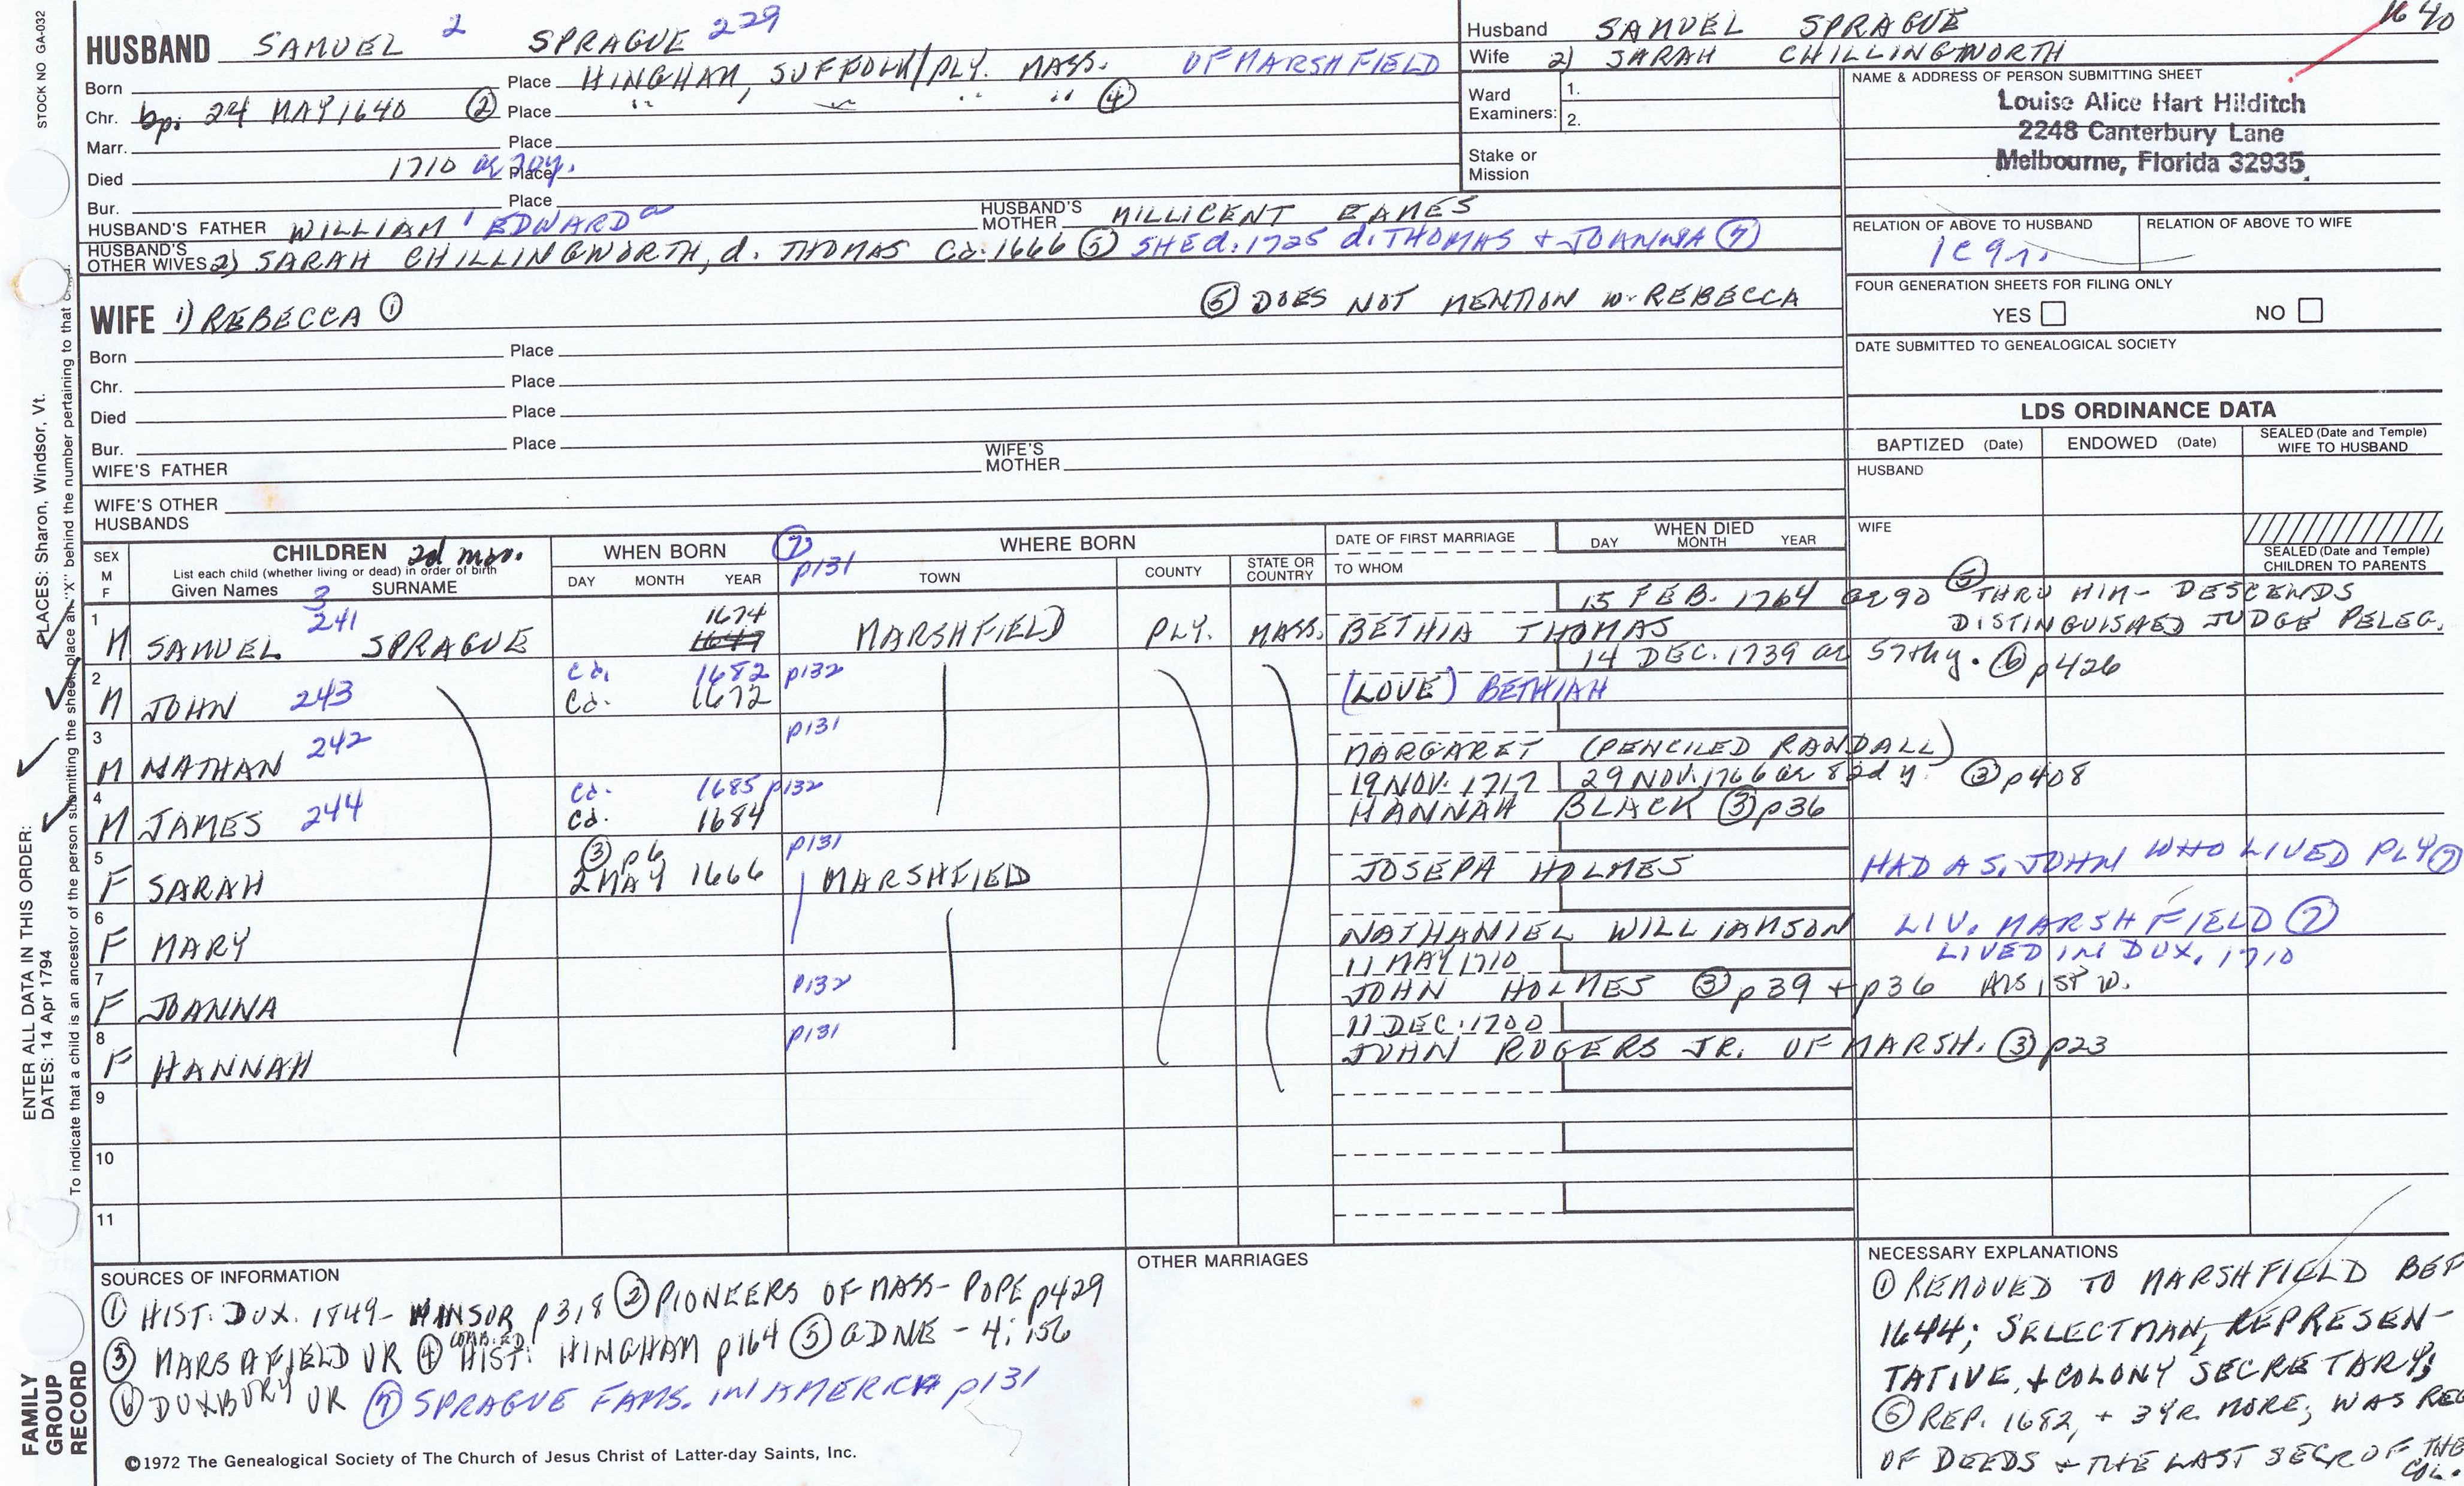 STOCK NO GA-032
HUSBAND SAMUEL 2 SPRAGUE 229
Born Place HINGHAM, SUFFOLK/PLY. MASS. OF MARSHFIELD
Chr. bp. 24 MAY 1640 ② Place " , " " " ④
Marr. Place
Died 1710 ae 70y. Place
Bur. Place
HUSBAND'S FATHER WILLIAM 1 EDWARD a HUSBAND'S MOTHER MILLICENT EAMES
HUSBAND'S OTHER WIVES 2) SARAH CHILLINGWORTH, d. THOMAS Ca. 1666 ⑤ SHE d. 1725 d. THOMAS + JOANNA ⑦
WIFE 1) REBECCA ① ⑤ DOES NOT MENTION w. REBECCA
Born Place
Chr. Place
Died Place
Bur. Place
WIFE'S FATHER WIFE'S MOTHER
WIFE'S OTHER HUSBANDS
Husband SAMUEL SPRAGUE 1640
Wife 2) SARAH CHILLINGWORTH
Ward Examiners: 1.
2.
Stake or Mission
NAME & ADDRESS OF PERSON SUBMITTING SHEET
Louise Alice Hart Hilditch
2248 Canterbury Lane
Melbourne, Florida 32935
RELATION OF ABOVE TO HUSBAND RELATION OF ABOVE TO WIFE
FOUR GENERATION SHEETS FOR FILING ONLY
YES NO
DATE SUBMITTED TO GENEALOGICAL SOCIETY
LDS ORDINANCE DATA
BAPTIZED (Date) ENDOWED (Date) SEALED (Date and Temple) WIFE TO HUSBAND
HUSBAND
WIFE
SEALED (Date and Temple) CHILDREN TO PARENTS
SEX M F
CHILDREN 2d mar.
List each child (whether living or dead) in order of birth
Given Names SURNAME
WHEN BORN ⑦ p131
DAY MONTH YEAR
WHERE BORN
TOWN COUNTY STATE OR COUNTRY
DATE OF FIRST MARRIAGE
TO WHOM
WHEN DIED
DAY MONTH YEAR
1 M SAMUEL 3 241 SPRAGUE 1674 MARSHFIELD PLY. MASS. BETHIA THOMAS
15 FEB. 1764 ae 90 ⑤ THRU HIM - DESCENDS
DISTINGUISHED JUDGE PELEG.
2 M JOHN 243 Ca. 1682 p132
Ca. 1672
14 DEC. 1739 ae 57thy. ⑥ p426
(LOVE) BETHIAH
3 M NATHAN 242 p131
MARGARET (PENCILED RANDALL)
4 M JAMES 244 Ca. 1685 p132
Ca. 1684
19 NOV. 1717 29 NOV. 1766 ae 82d y. ③ p408
HANNAH BLACK ③ p36
5 F SARAH ③ p6 p131
2 MAY 1666 MARSHFIELD JOSEPH HOLMES HAD A S. JOHN WHO LIVED PLY ⑦
6 F MARY NATHANIEL WILLIAMSON LIV. MARSHFIELD ⑦
7 F JOANNA p132
11 MAY 1710 LIVED IN DUX. 1710
JOHN HOLMES ③ p39 + p36 HIS 1ST W.
8 F HANNAH p131
11 DEC. 1700
JOHN ROGERS JR. OF MARSH. ③ p23
9
10
11
SOURCES OF INFORMATION
① HIST. DUX. 1849 - WINSOR p318 ② PIONEERS OF MASS - POPE p429
③ MARSHFIELD VR ④ COMBINED HIST. HINGHAM p164 ⑤ GDNE - 4; 156
⑥ DUXBURY VR ⑦ SPRAGUE FAMS. IN AMERICA p131
OTHER MARRIAGES
NECESSARY EXPLANATIONS
① REMOVED TO MARSHFIELD BEF
1644; SELECTMAN, REPRESEN-
TATIVE, + COLONY SECRETARY;
⑤ REP. 1682, + 3 YR. MORE; WAS REG
OF DEEDS + THE LAST SECR OF THE
COL.
©1972 The Genealogical Society of The Church of Jesus Christ of Latter-day Saints, Inc.
FAMILY GROUP RECORD
ENTER ALL DATA IN THIS ORDER:
DATES: 14 Apr 1794
PLACES: Sharon, Windsor, Vt.
To indicate that a child is an ancestor of the person submitting the sheet, place an "X" behind the number pertaining to that